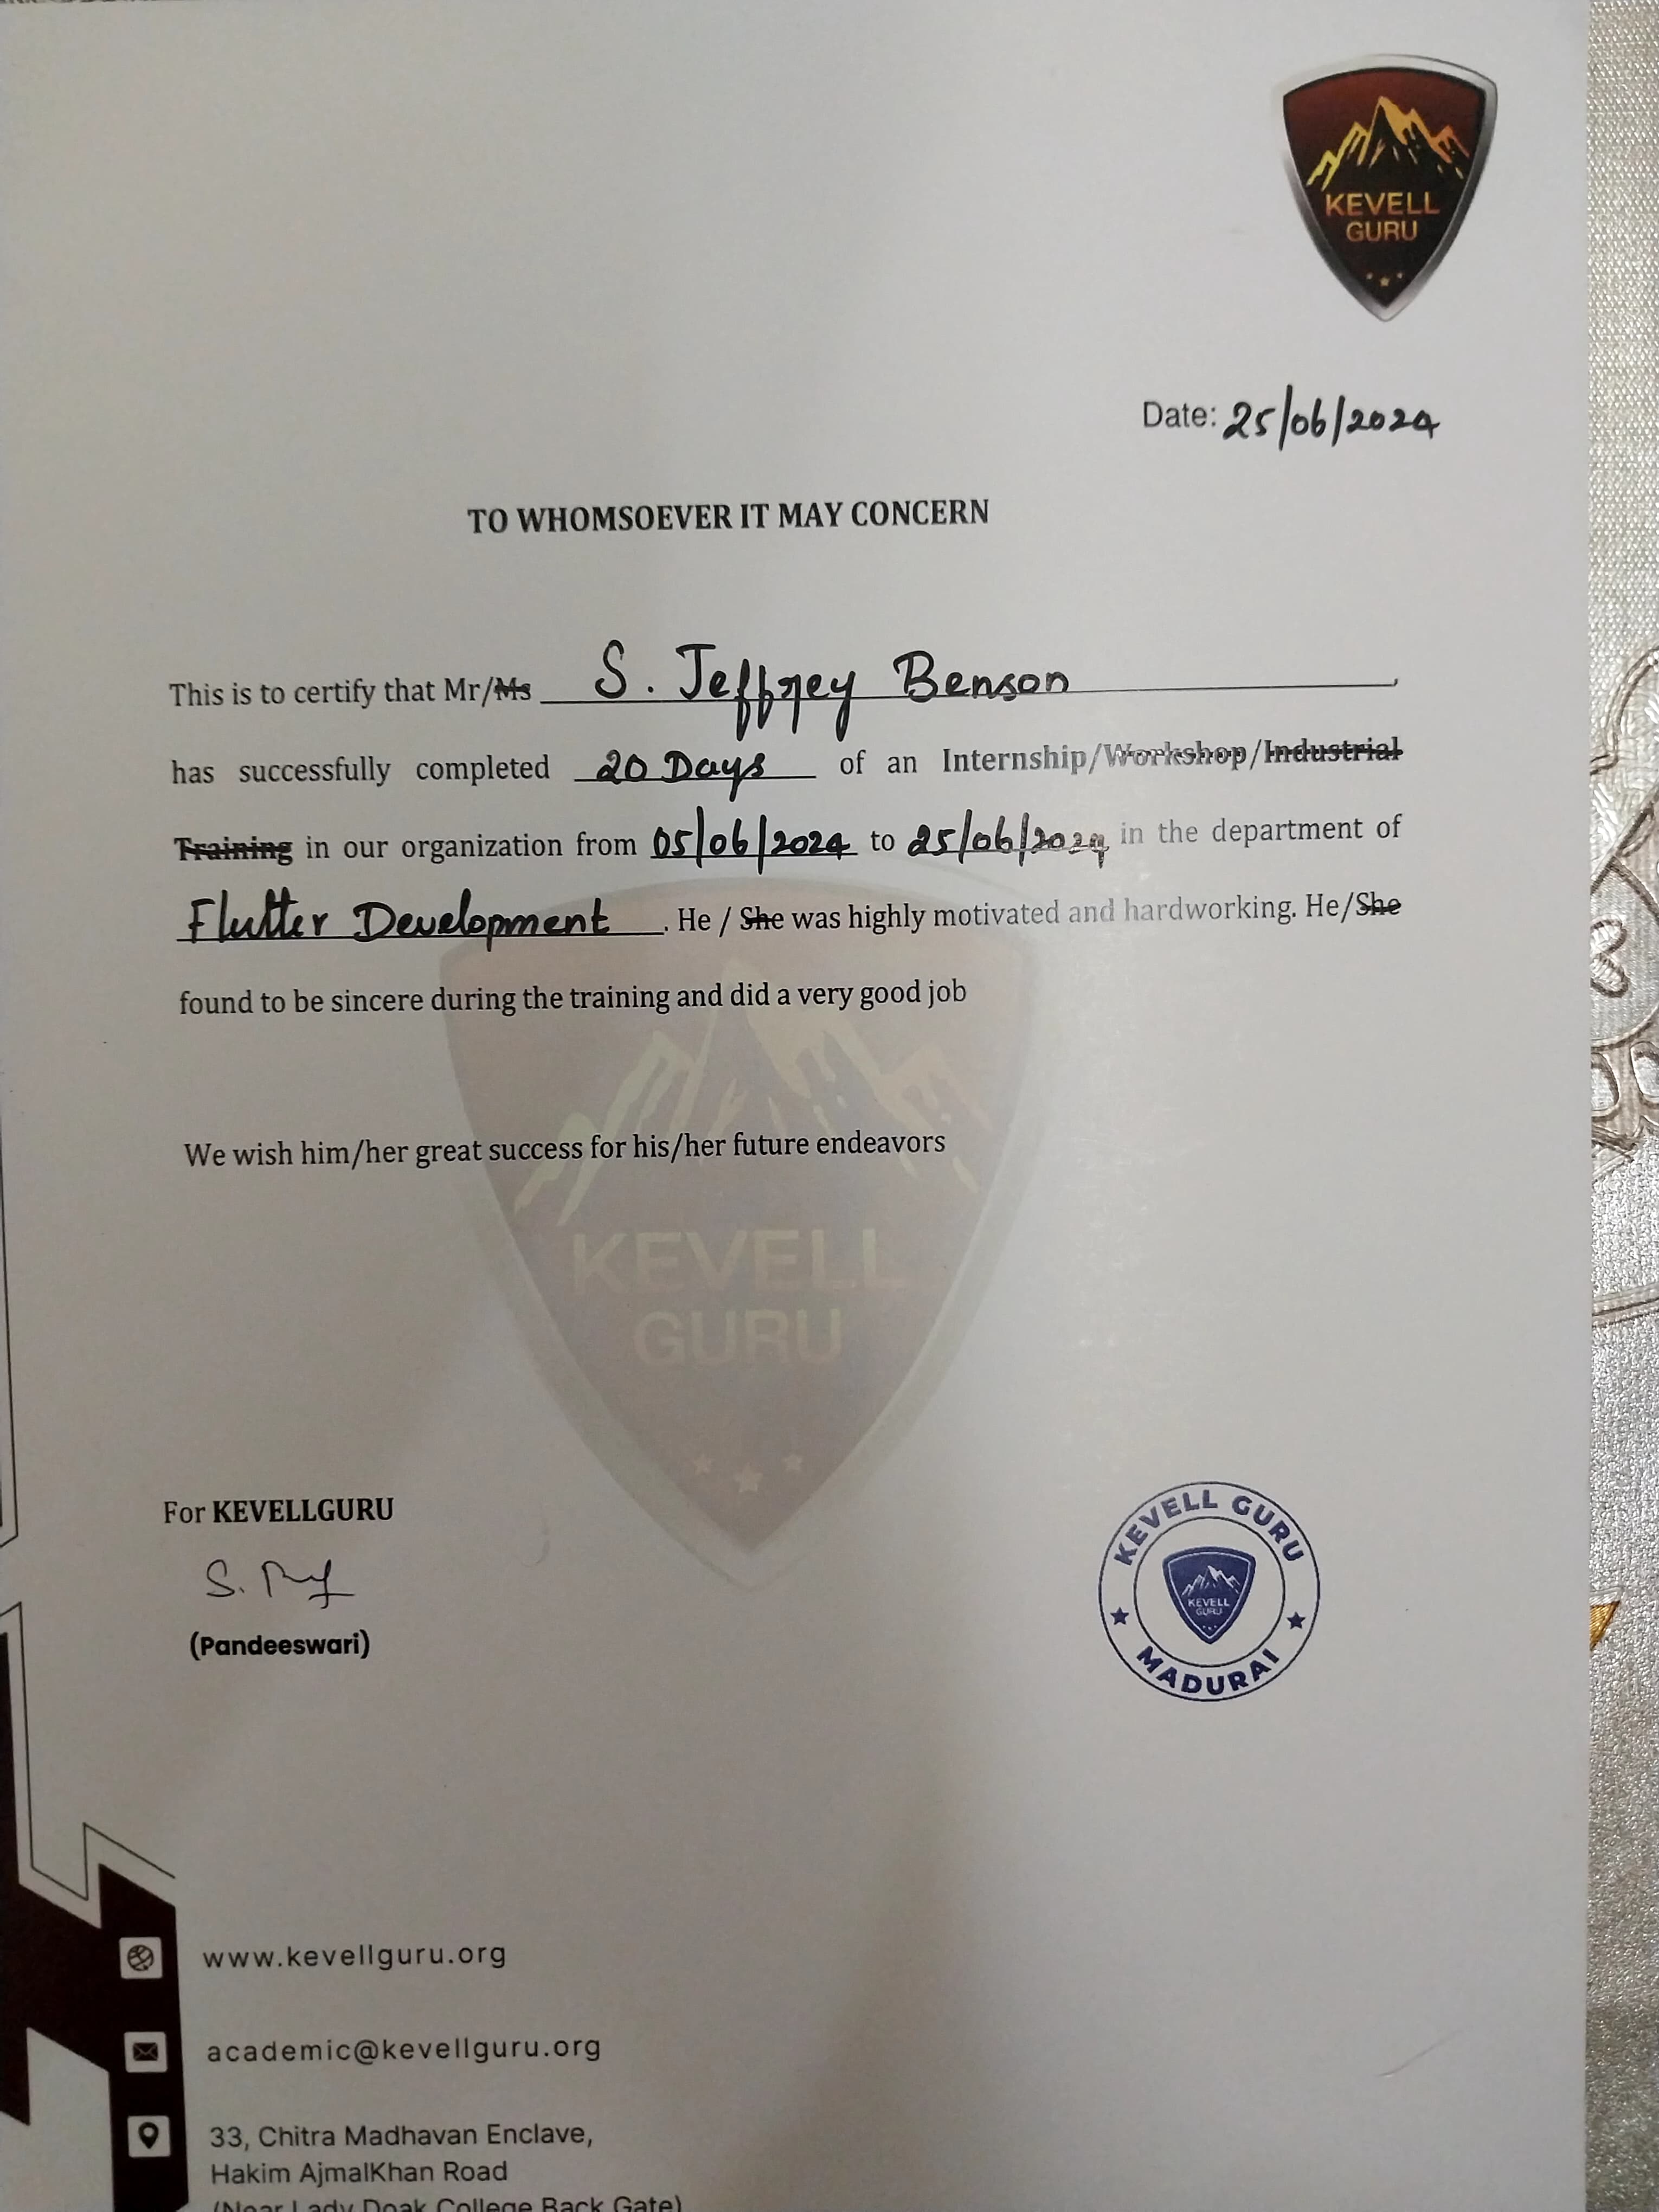 KEVELL
GURU
Date: 25/06/2024
TO WHOMSOEVER IT MAY CONCERN
This is to certify that Mr/Ms S. Jeffrey Benson,
has successfully completed 20 Days of an Internship/Workshop/Industrial
Training in our organization from 05/06/2024 to 25/06/2024 in the department of
Flutter Development. He / She was highly motivated and hardworking. He/She
found to be sincere during the training and did a very good job
We wish him/her great success for his/her future endeavors
KEVELL
GURU
For KEVELLGURU
(Pandeeswari)
KEVELL GURU
KEVELL
GURU
MADURAI
www.kevellguru.org
academic@kevellguru.org
33, Chitra Madhavan Enclave,
Hakim AjmalKhan Road
(Near Lady Doak College Back Gate)